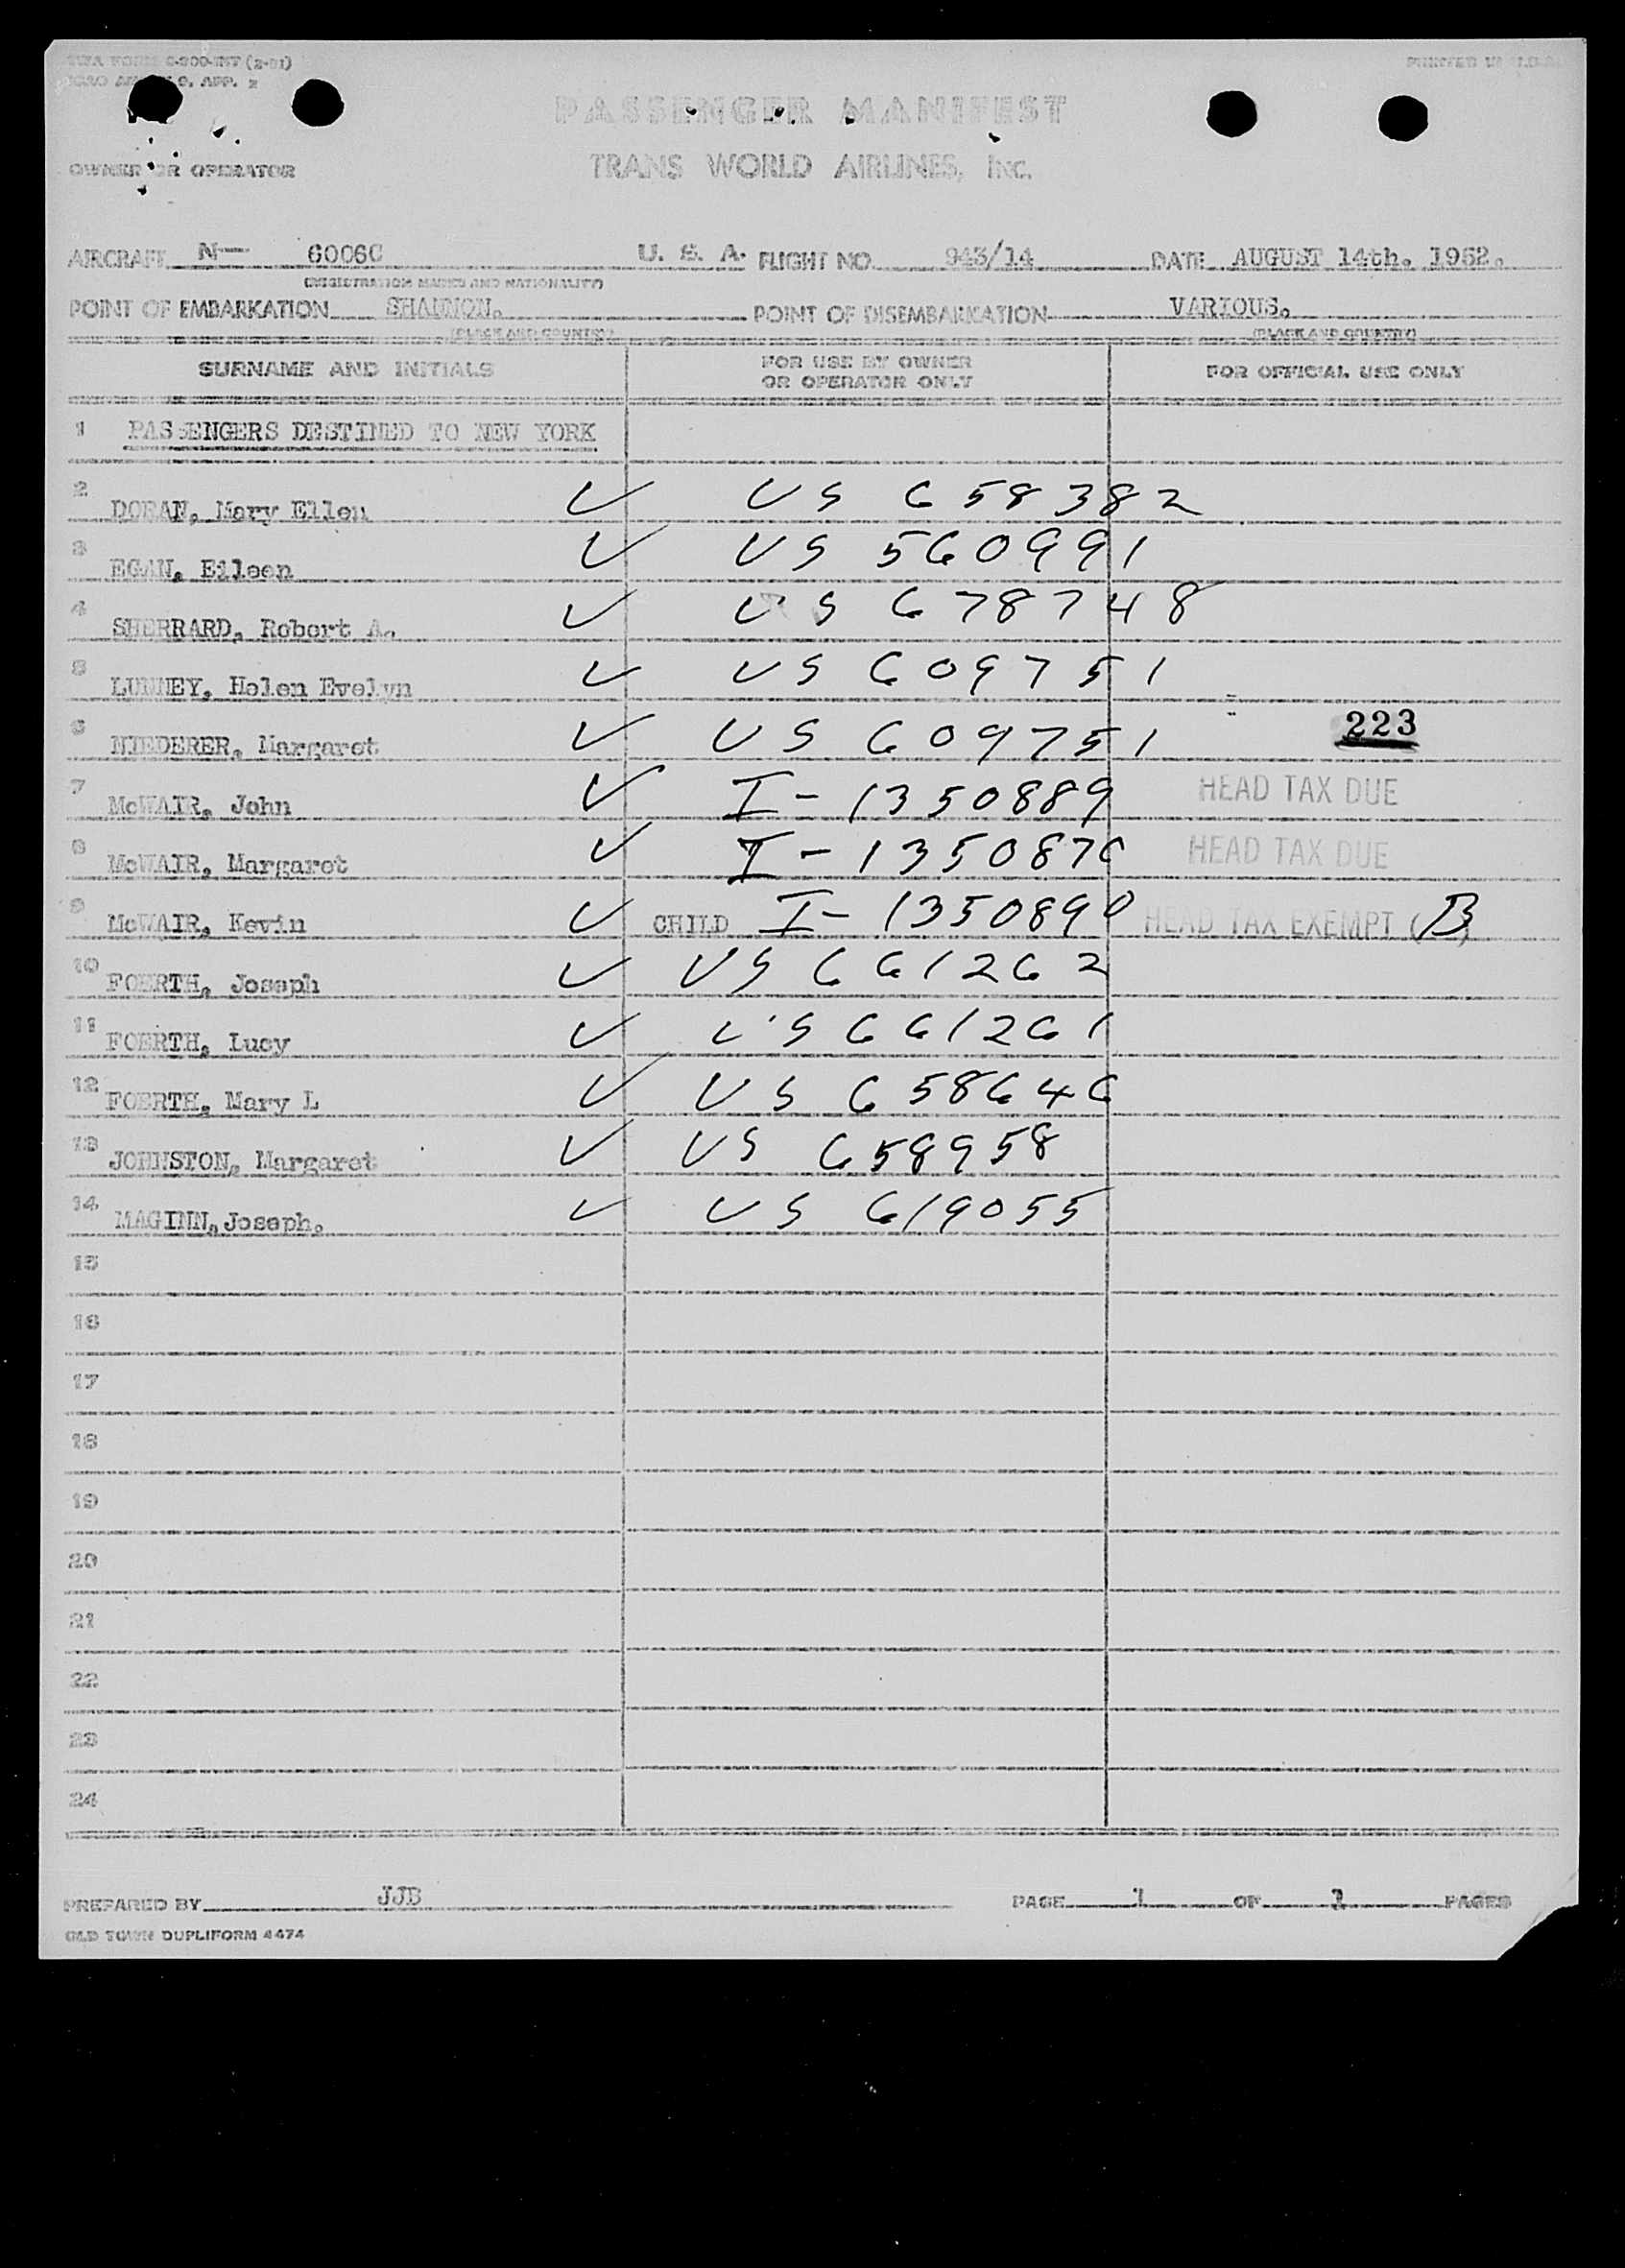 TWA FORM C-300-INT (2-51)
ICAO ANNEX 9, APP. 2
PRINTED IN U.S.A.
PASSENGER MANIFEST
OWNER OR OPERATOR TRANS WORLD AIRLINES, Inc.
AIRCRAFT N— 6006C U. S. A. FLIGHT NO. 943/14 DATE AUGUST 14th. 1952.
(REGISTRATION MARKS AND NATIONALITY)
POINT OF EMBARKATION SHANNON. POINT OF DISEMBARKATION VARIOUS.
(PLACE AND COUNTRY) (PLACE AND COUNTRY)
SURNAME AND INITIALS FOR USE BY OWNER OR OPERATOR ONLY FOR OFFICIAL USE ONLY
1 PASSENGERS DESTINED TO NEW YORK
2 DORAN, Mary Ellen ✓ US 658382
3 EGAN, Eileen ✓ US 560991
4 SHERRARD, Robert A. ✓ US 678748
5 LUNNEY, Helen Evelyn ✓ US 609751
6 NIEDERER, Margaret ✓ US 609751 223
7 McWAIR, John ✓ I-1350889 HEAD TAX DUE
8 McWAIR, Margaret ✓ I-1350870 HEAD TAX DUE
9 McWAIR, Kevin ✓ CHILD I-1350890 HEAD TAX EXEMPT (B)
10 FOERTH, Joseph ✓ US 661262
11 FOERTH, Lucy ✓ US 661261
12 FOERTH, Mary L ✓ US 658646
13 JOHNSTON, Margaret ✓ US 658958
14 MAGINN, Joseph. ✓ US 619055
15
16
17
18
19
20
21
22
23
24
PREPARED BY JJB PAGE 1 OF 1 PAGES
OLD TOWN DUPLIFORM 4474